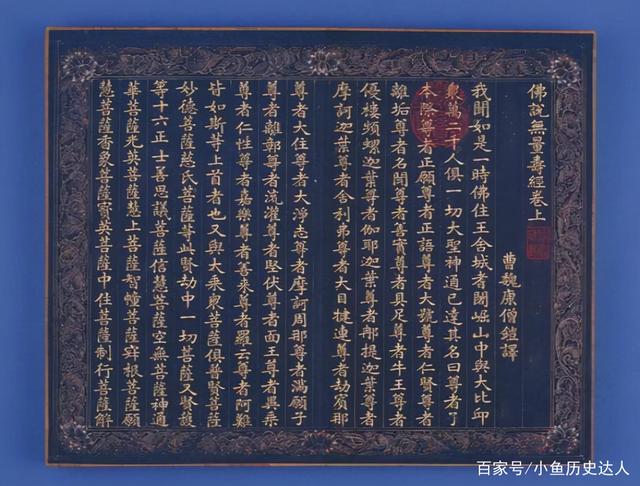 佛說無量壽經卷上
曹魏康僧鎧譯
我聞如是一時佛住王舍城耆闍崛山中與大比丘
衆萬二千人俱一切大聖神通已達其名曰尊者了
本際尊者正願尊者正語尊者大號尊者仁賢尊者
離垢尊者名聞尊者善實尊者具足尊者牛王尊者
優樓頻螺迦葉尊者伽耶迦葉尊者那提迦葉尊者
摩訶迦葉尊者舍利弗尊者大目犍連尊者劫賓那
尊者大住尊者大淨志尊者摩訶周那尊者滿願子
尊者離鄣尊者流灌尊者堅伏尊者面王尊者異乘
尊者仁性尊者嘉樂尊者善來尊者羅云尊者阿難
皆如斯等上首者也又與大乘衆菩薩俱普賢菩薩
妙德菩薩慈氏菩薩等此賢劫中一切菩薩又賢護
等十六正士善思議菩薩信慧菩薩空無菩薩神通
華菩薩光英菩薩慧上菩薩智幢菩薩寂根菩薩願
慧菩薩香象菩薩寶英菩薩中住菩薩制行菩薩解
百家号/小鱼历史达人